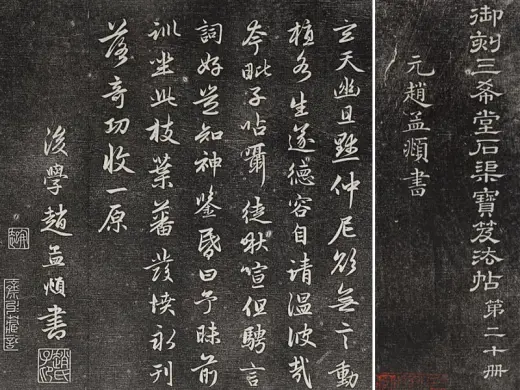 御刻三希堂石渠寶笈法帖 第二十册
元趙孟頫書
玄天幽且默仲尼欲無言動
植各生遂德容自清溫彼哉
夸毗子呫囁徒啾喧但騁言
詞好豈知神鑒昏曰予昧前
訓坐此枝葉蕃發憤永刊
落奇功收一原
後學趙孟頫書
趙氏子昂